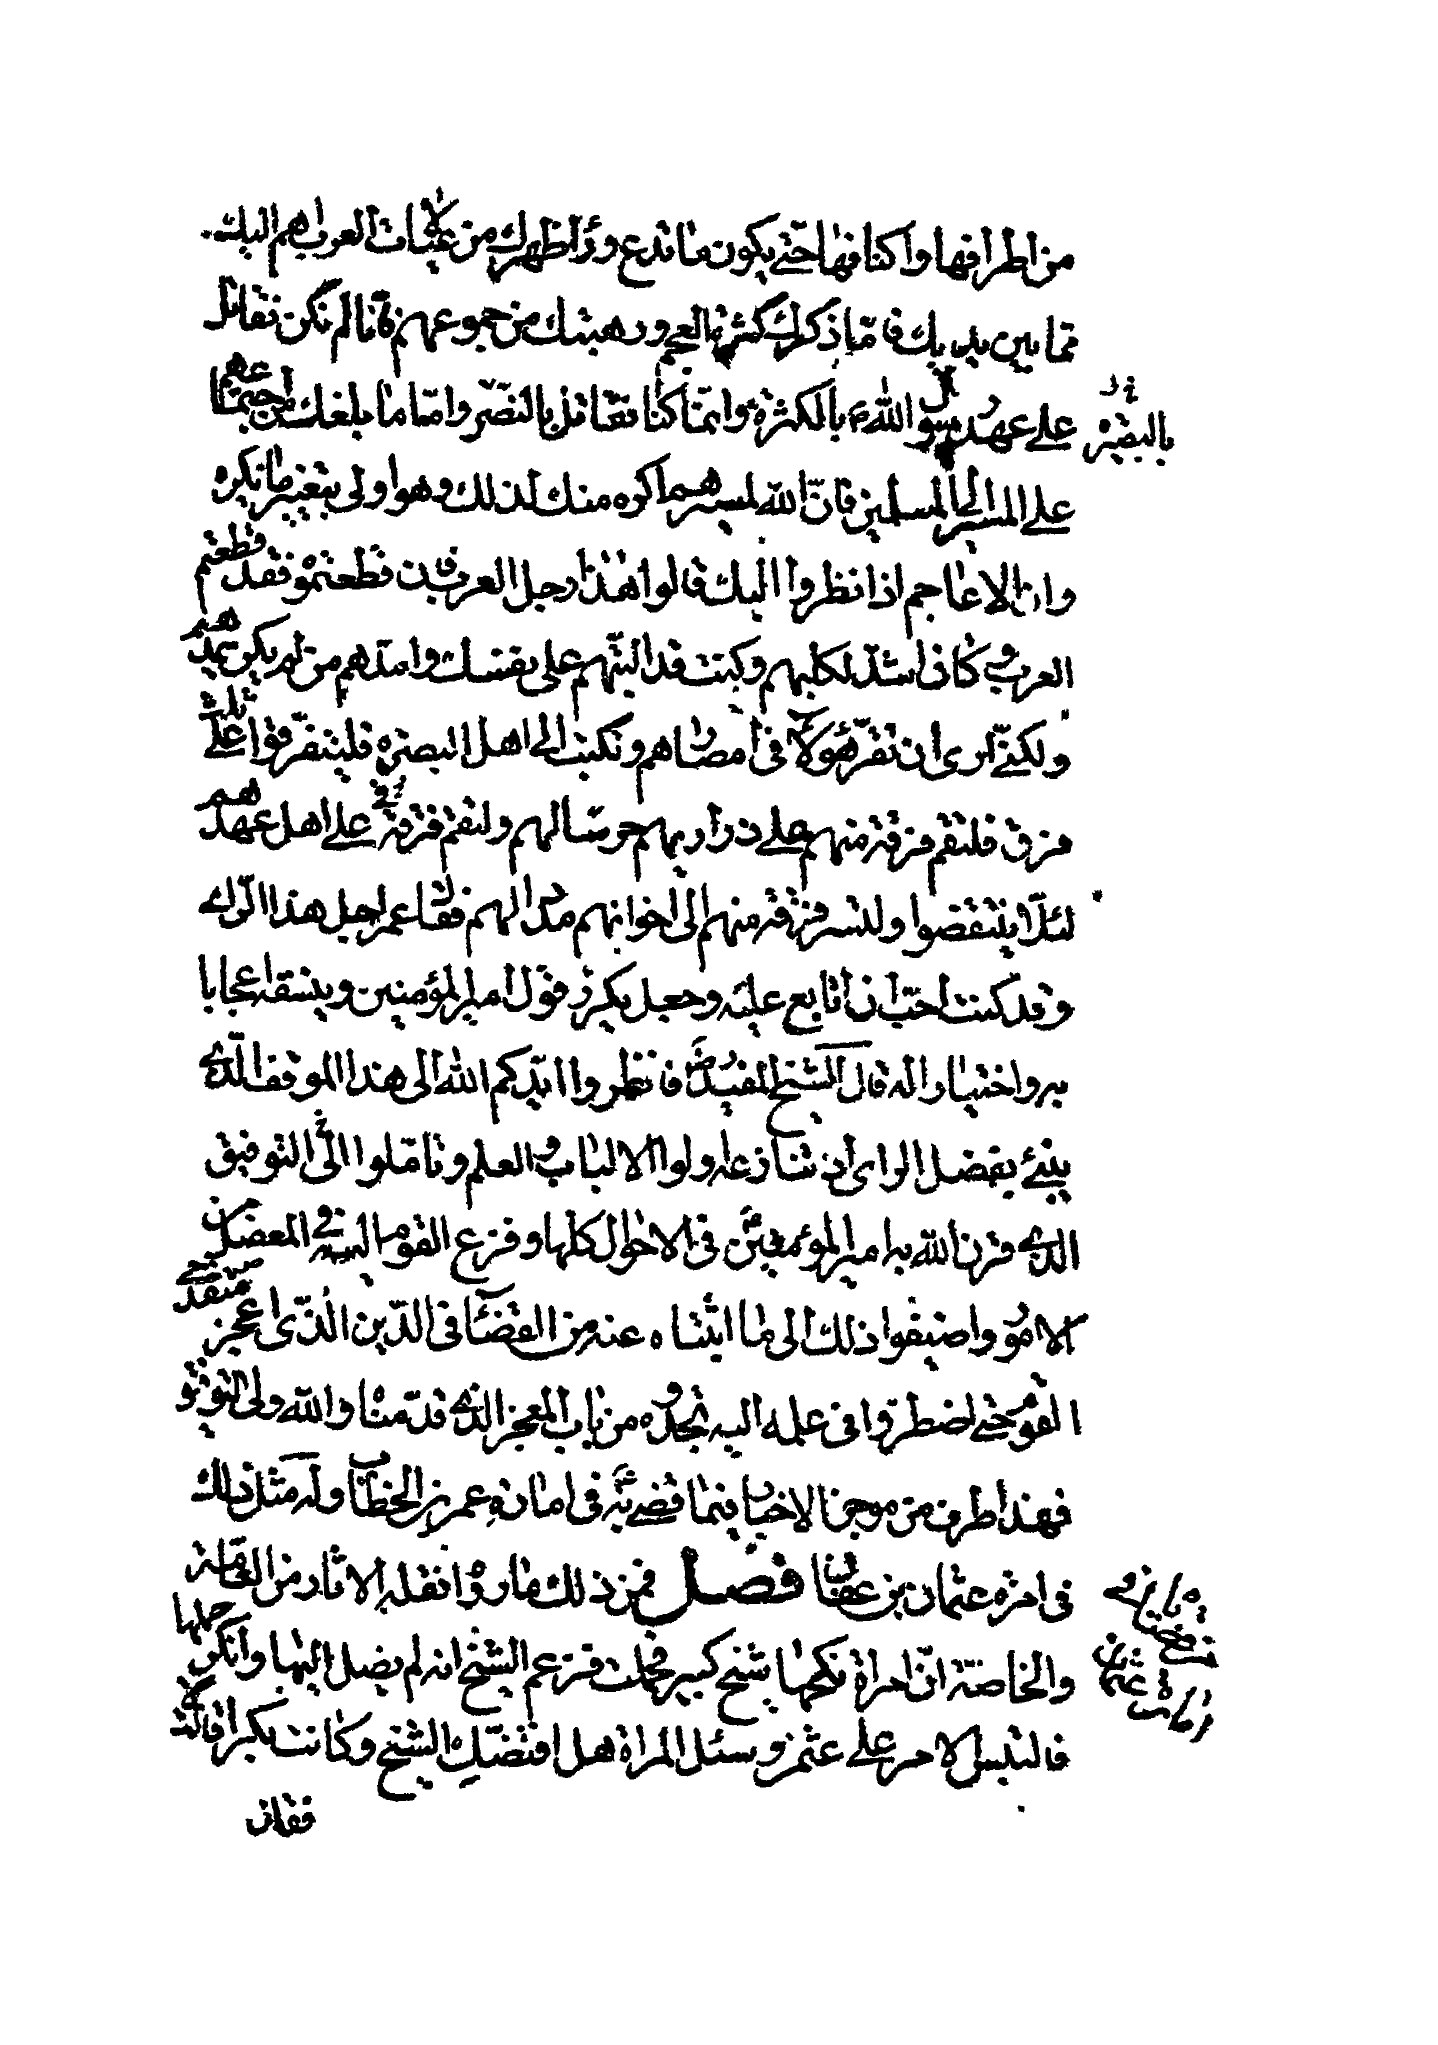 من اطرافها واكنافها حتى يكون ما تدع وراء ظهرك من عيالات العرب اهم اليك
مما بين يديك فاما ذكرك كثرة العجم ورهبتك من جموعهم فانا لم نكن نقاتل
على عهد رسول الله ع بالكثرة وانما كنا نقاتل بالنصر واما ما بلغك من اجتماعهم
على المسير الى المسلمين فان الله لمسيرهم اكره منك لذلك وهو اولى بتغيير ما نكره
وان الاعاجم اذا نظروا اليك قالوا هذا رجل العرب فان قطعتموه فقد قطعتم
العرب وكان اشد لكلبهم وكنت قد البتهم على نفسك وامدهم من لم يكن يمدهم
ولكنى ارى ان تقر هؤلاء فى امصارهم وتكتب الى اهل البصرة فليتفرقوا على ثلث
فرق فلتقم فرقة منهم على ذراريهم حرسا لهم ولتقم فرقة على اهل عهدهم
لئلا ينتقضوا ولتسر فرقة منهم الى اخوانهم مددا لهم فقال عمر اجل هذا الراى
وقد كنت احب ان اتابع عليه وجعل يكرر قول امير المؤمنين وينسقه اعجابا
به واختيارا له قال الشيخ المفيد رض فانظروا ايدكم الله الى هذا الموقف الذى
ينبئ بفضل الراى اذ تنازعه اولوا الالباب والعلم وتاملوا الى التوفيق
الذى قرن الله به امير المؤمنين فى الاحوال كلها وفزع القوم اليه فى المعضل من
الامور واضيفوا ذلك الى ما اثبتناه عنه من القضاء فى الدين الذى اعجز متقدمى
القوم حتى اضطروا فى علمه اليه تجدوه من باب المعجز الذى قدمناه والله ولى التوفيق
فهذا طرف من موجز الاخبار فيما قضى به فى امارة عمر بن الخطاب وله مثل ذلك
فى امرة عثمان بن عفان فصل فمن ذلك ما رواه نقلة الاثار من العامة
والخاصة ان امراة نكحها شيخ كبير فحملت فزعم الشيخ انه لم يصل اليها وانكر حملها
فالتبس الامر على عثمن وسئل المراة هل افتضك الشيخ وكانت بكرا قالت لا
فقال
بالبصيرة
قضاياه فى
امارة عثمان